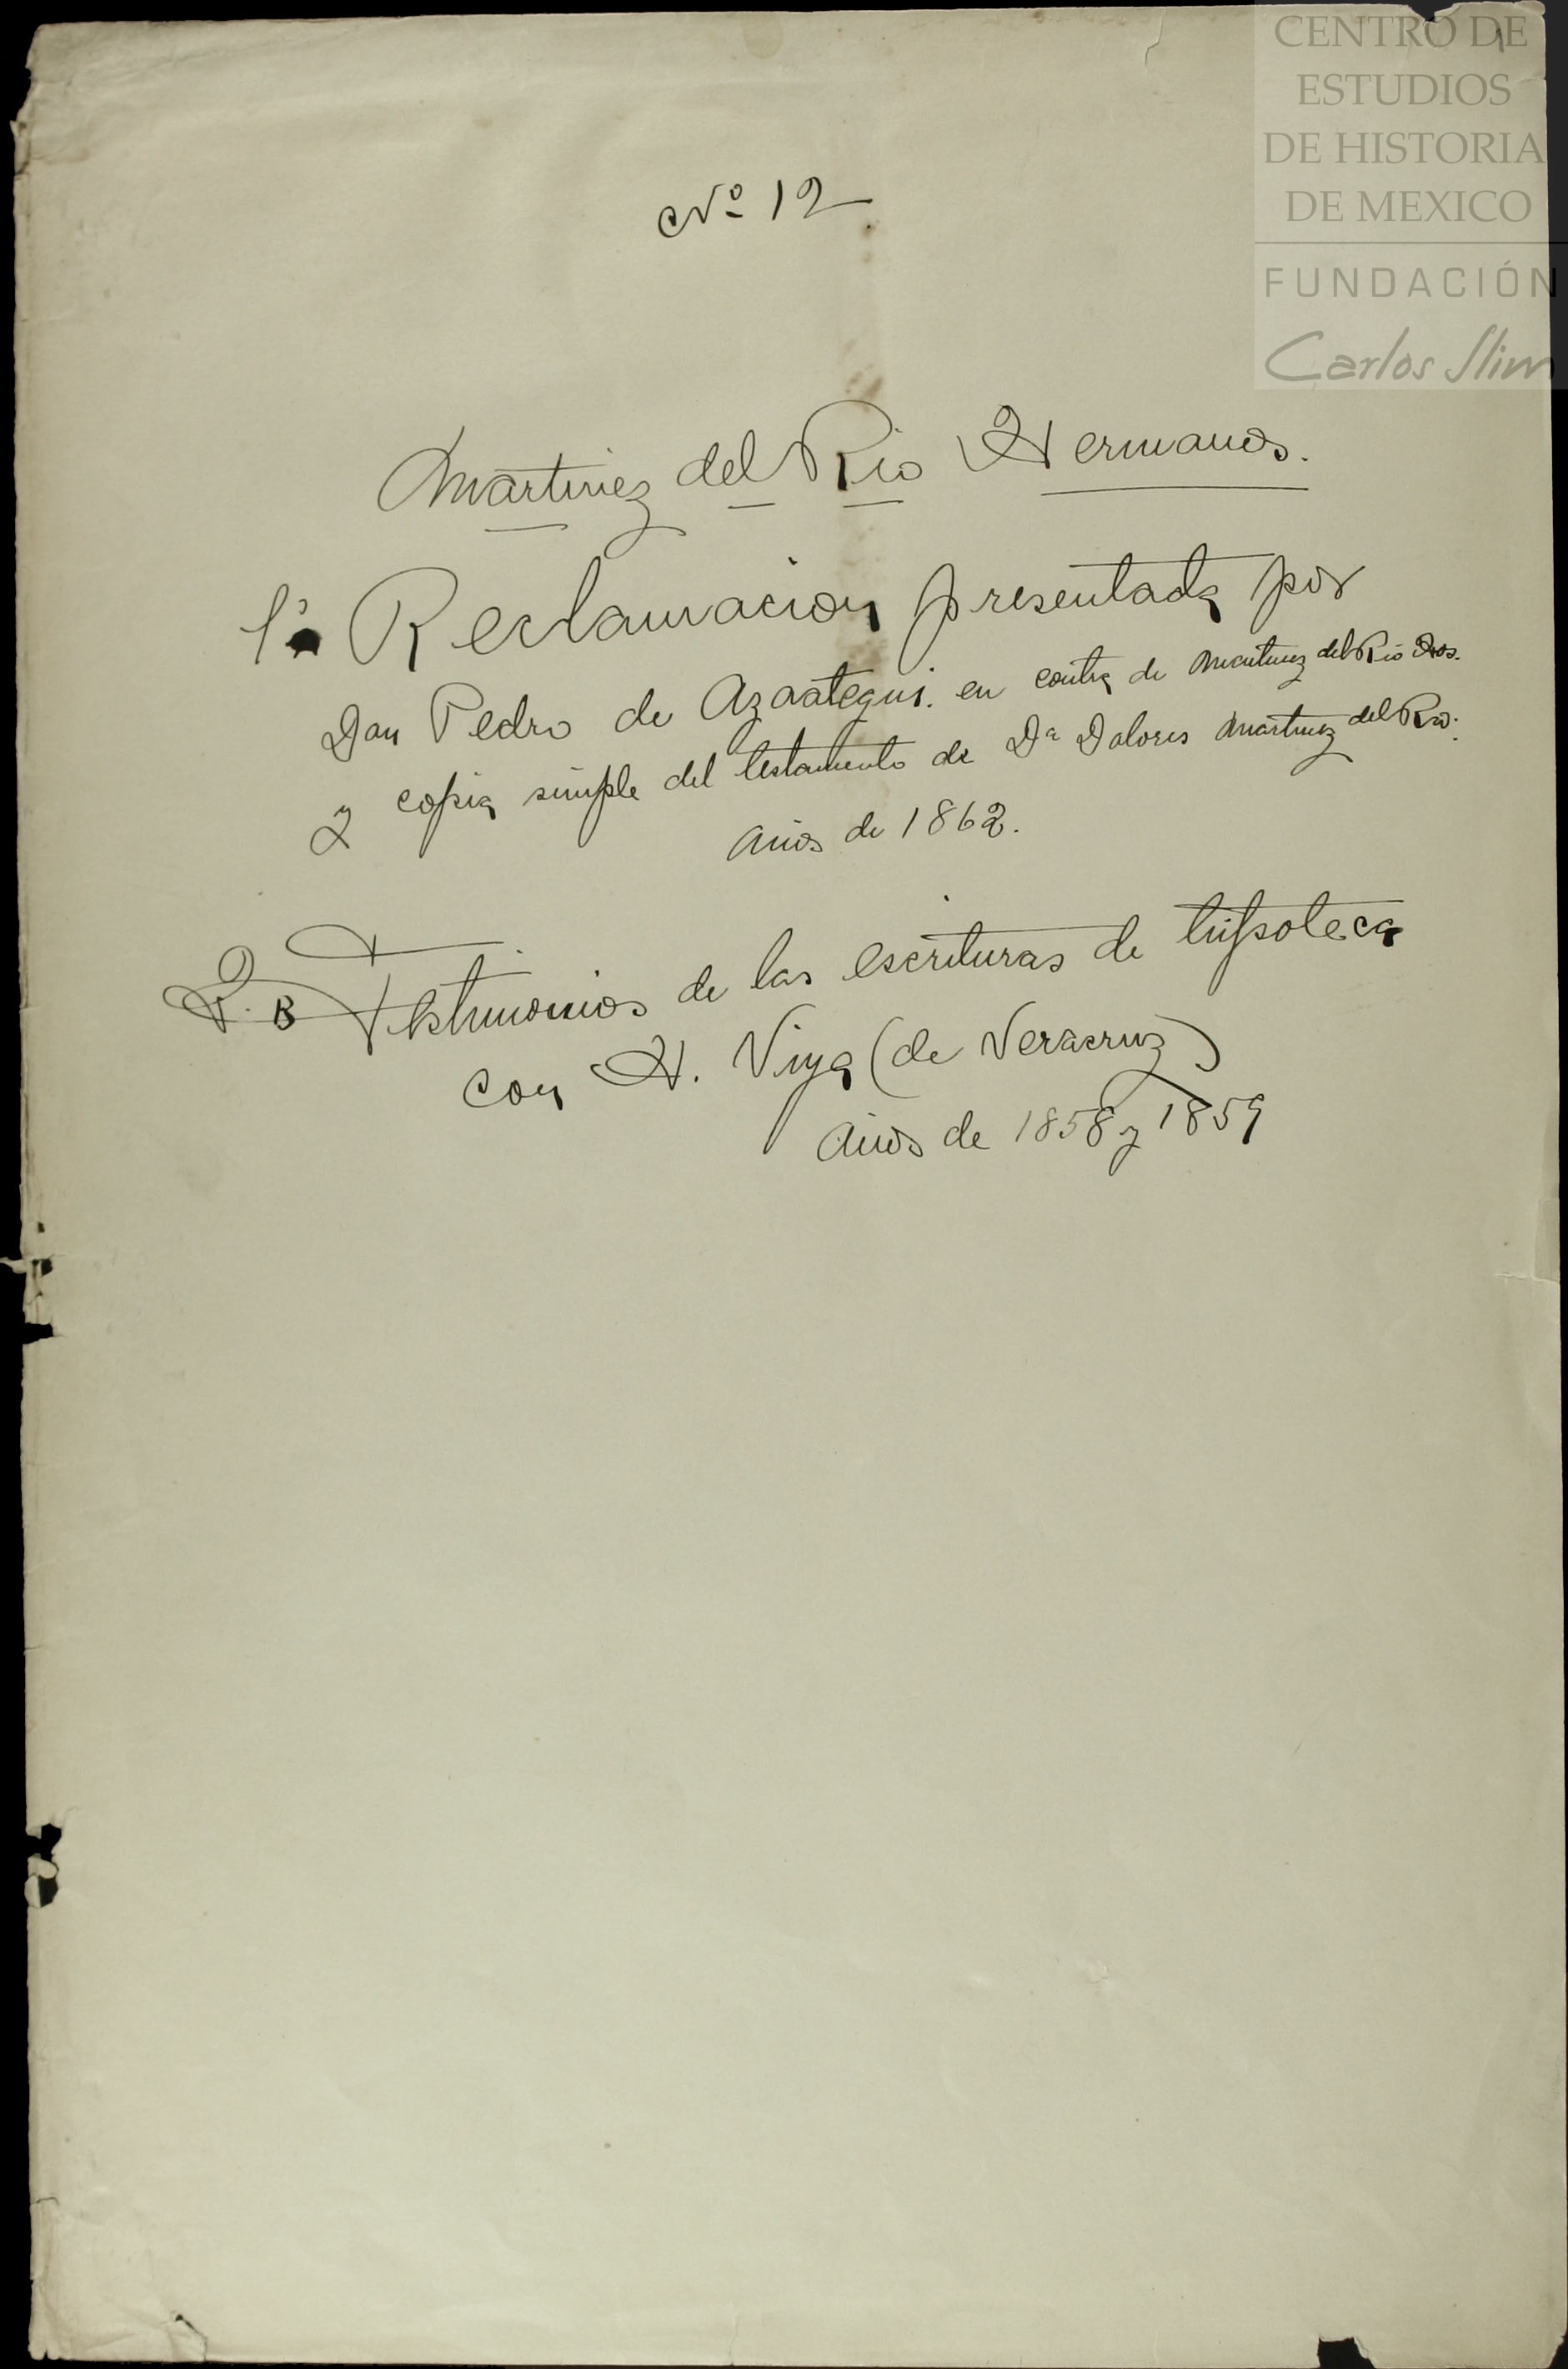 CENTRO DE
ESTUDIOS
DE HISTORIA
DE MEXICO
FUNDACIÓN
Carlos Slim
Nº 12
Martinez del Rio Hermanos.
Reclamacion presentada por
Don Pedro de Azoategui. en contra de Martinez del Rio Hos.
y copia simple del testamento de Dª Dolores Martinez del Rio.
Años de 1862.
Testimonios de las escrituras de hipoteca
con H. Viya (de Veracruz)
Años de 1858 y 1859